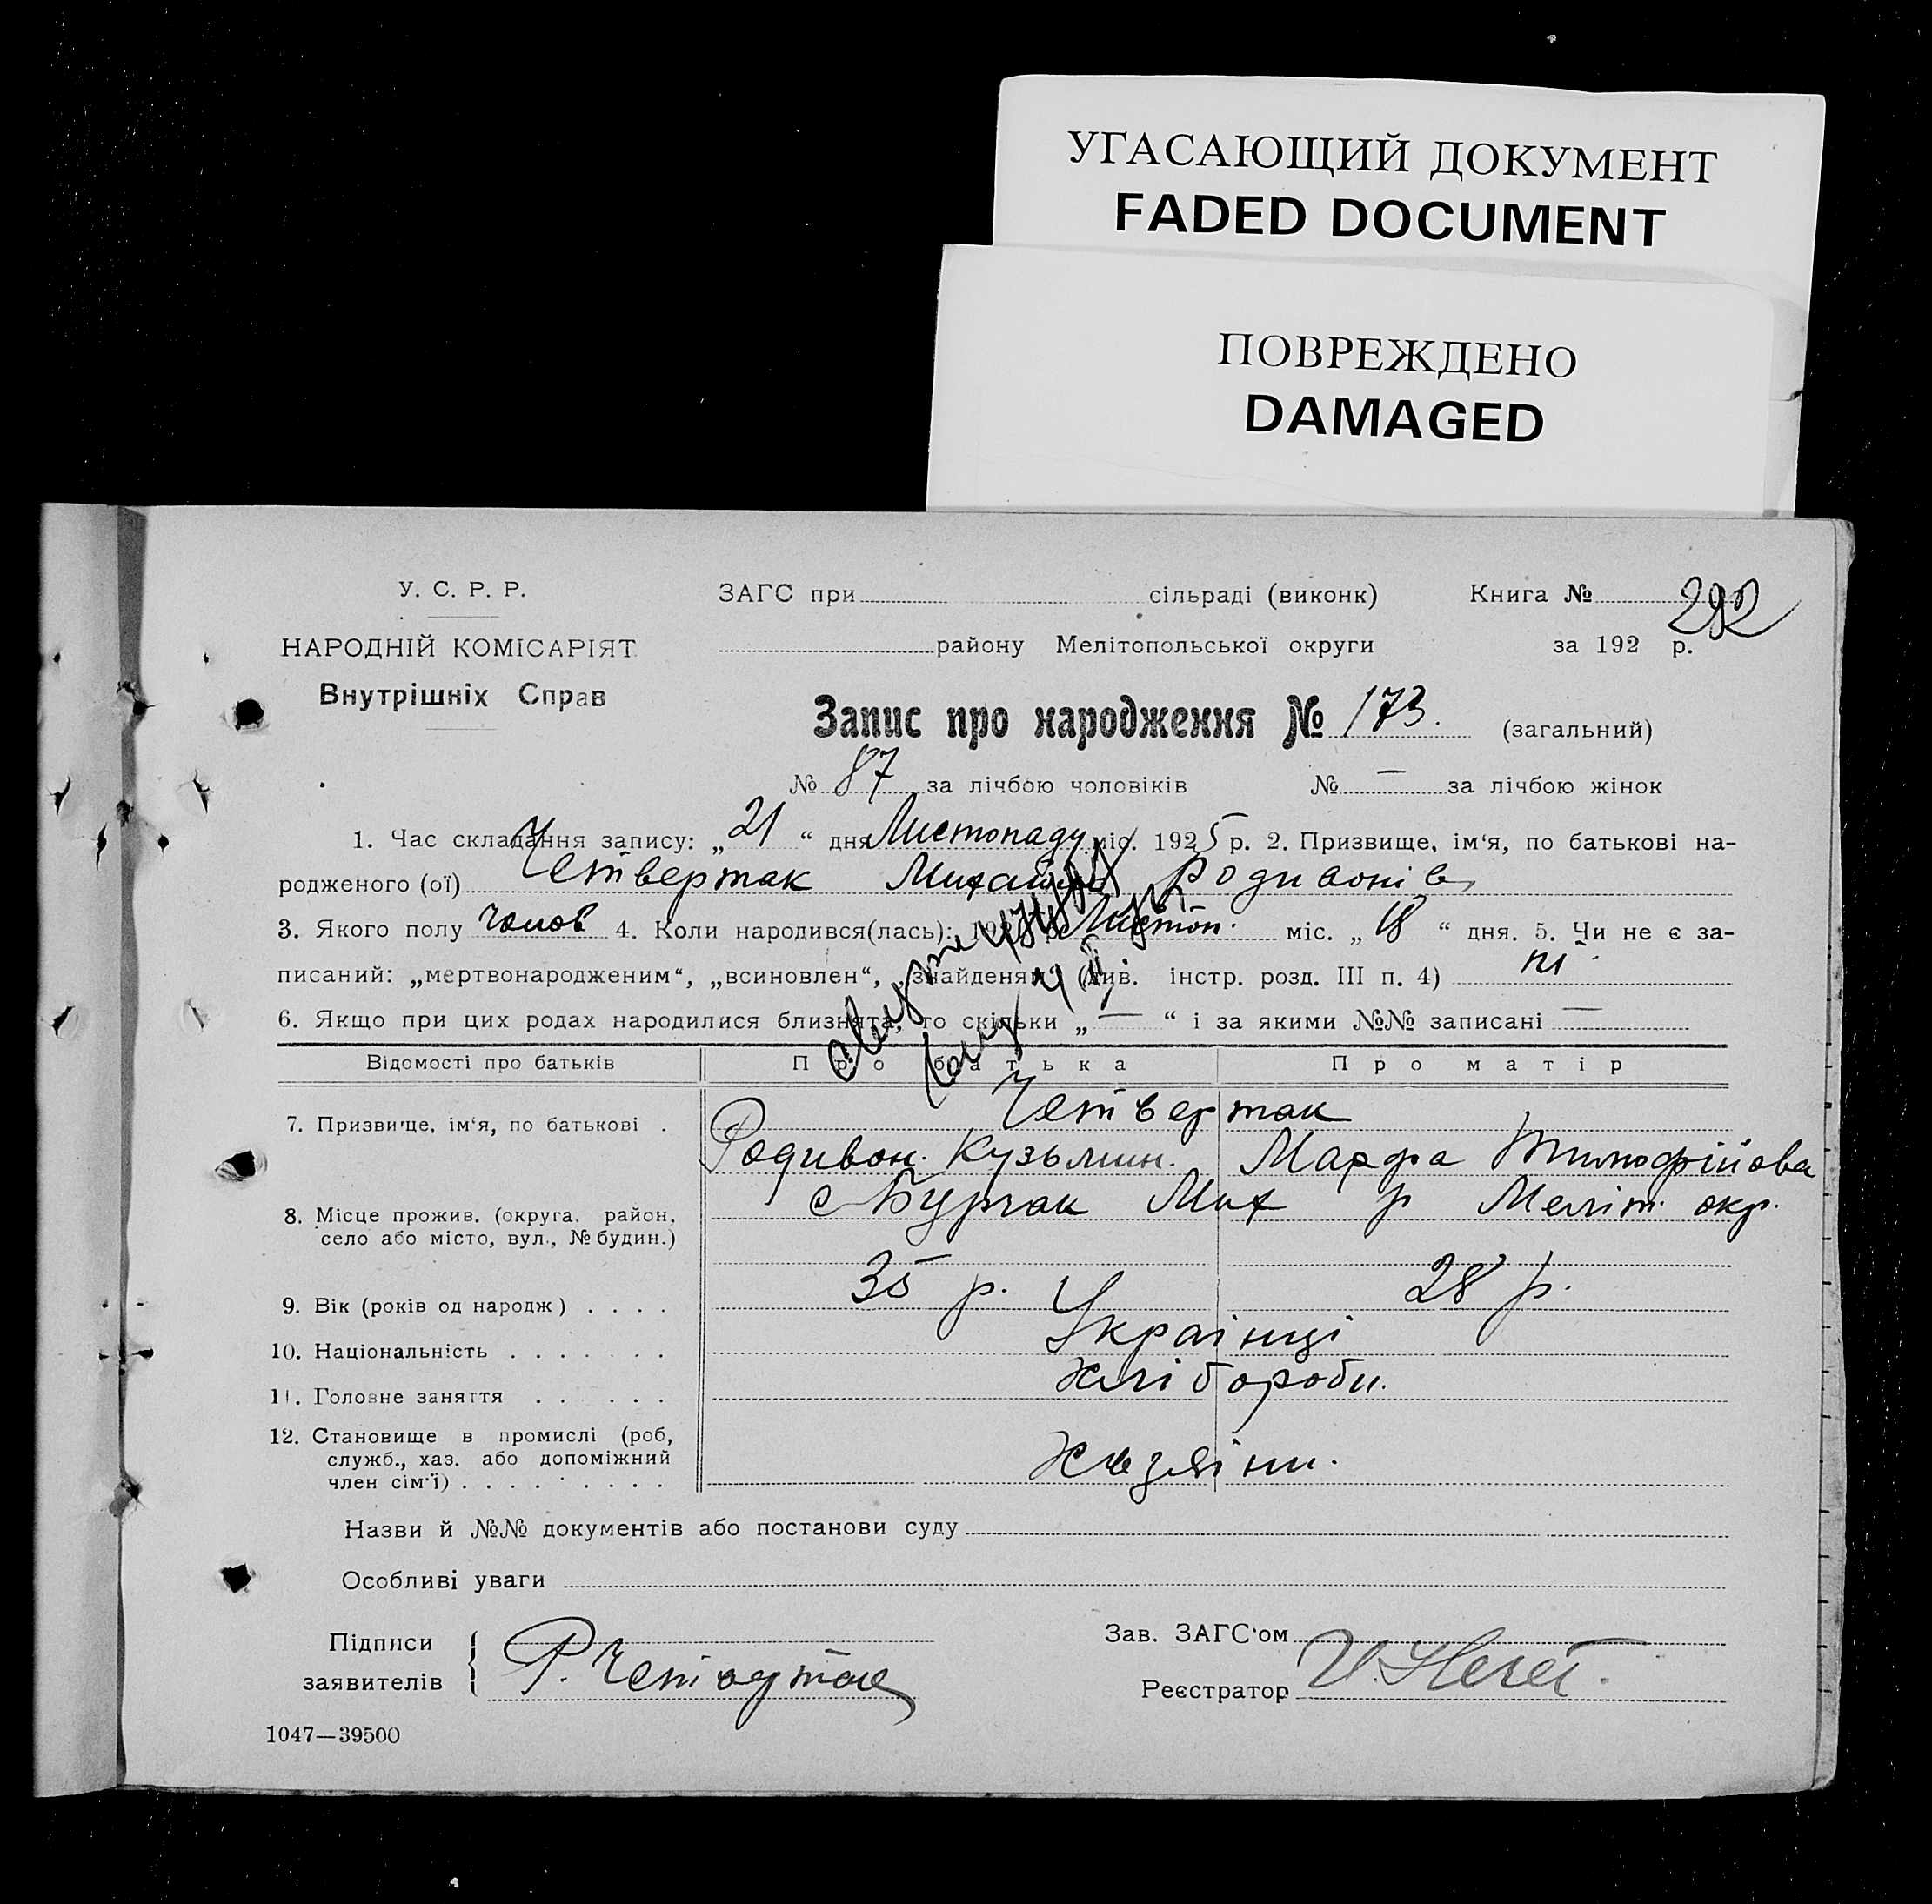 УГАСАЮЩИЙ ДОКУМЕНТ
FADED DOCUMENT
ПОВРЕЖДЕНО
DAMAGED
У. С. Р. Р.
НАРОДНІЙ КОМІСАРІЯТ
Внутрішніх Справ
ЗАГС при сільраді (виконк) Книга №
292
району Мелітопольської округи за 192 р.
Запис про народження № 173. (загальний)
№ 87 за лічбою чоловіків № — за лічбою жінок
1. Час складання запису: „21“ дня Листопаду міс. 1925 р. 2. Призвище, ім‘я, по батькові на-
родженого (ої) Четвертак Михайло Родивонів
3. Якого полу чолов 4. Коли народився(лась): 192 р. Листоп. міс. „18“ дня. 5. Чи не є за-
писаний: „мертвонародженим“, „всиновлен“, „знайденям“ (див. інстр. розд. III п. 4) ні
6. Якщо при цих родах народилися близнята, то скільки „—“ і за якими №№ записані —
Відомості про батьків Про батька Про матір
7. Призвище, ім‘я, по батькові . Четвертак
Родивон. Кузьмин. Марфа Тимофійова
8. Місце прожив. (округа, район, село або місто, вул., № будин.) с Бурчак Мих р Меліт. окр.
9. Вік (років од народж) . . . . 35 р. 28 р.
10. Національність . . . . . . . Українці
11. Головне заняття . . . . . Хлібороби.
12. Становище в промислі (роб,
служб., хаз. або допоміжний
член сім‘ї) . . . . . . . .
Назви й №№ документів або постанови суду
Особливі уваги
Підписи
заявителів { Р. Четвертак
Зав. ЗАГС‘ом
Реєстратор
1047—39500